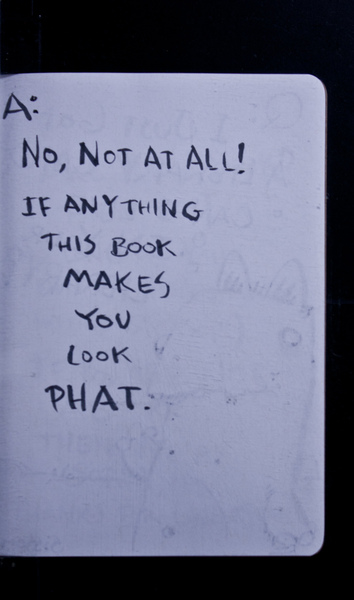 A:
NO, NOT AT ALL!
IF ANYTHING
THIS BOOK
MAKES
YOU
LOOK
PHAT.